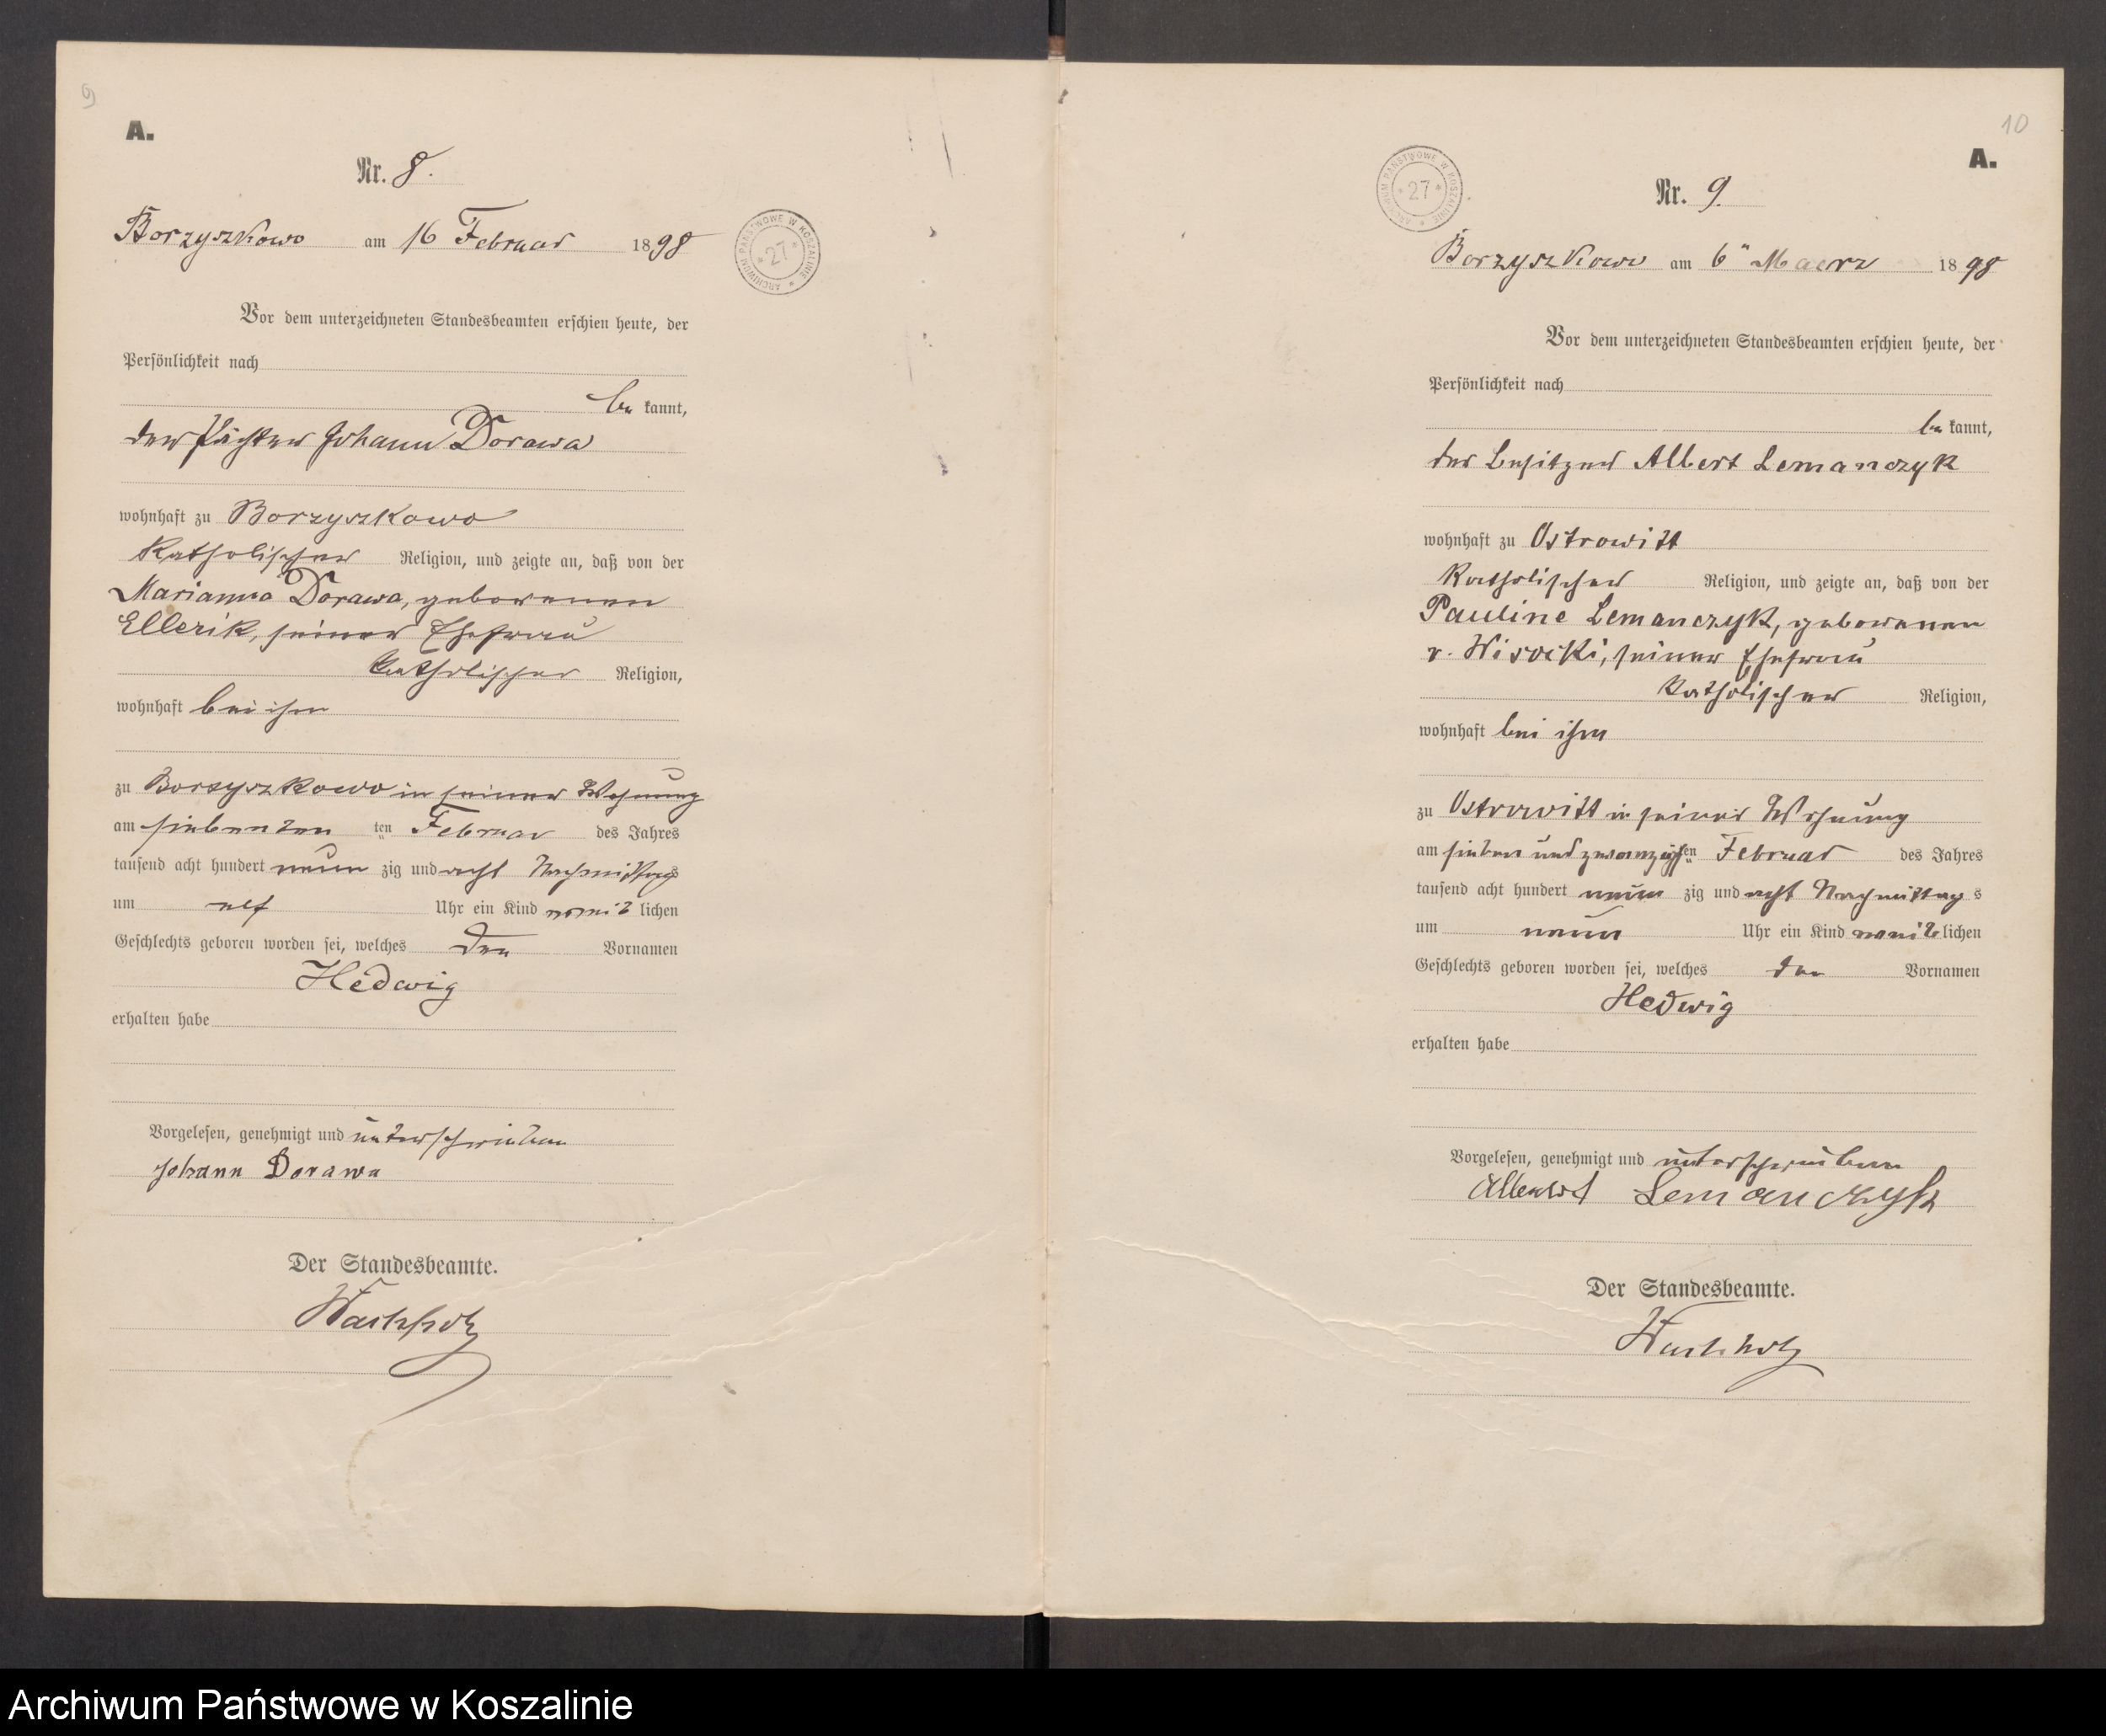 9
A.
Nr. 8.
Borzyszkowo am 16 Februar 1898
ARCHIWUM PAŃSTWOWE W KOSZALINIE * 27 *
Vor dem unterzeichneten Standesbeamten erschien heute, der
Persönlichkeit nach
be kannt,
der Pächter Johann Dorawa
wohnhaft zu Borzyszkowo
katholischer Religion, und zeigte an, daß von der
Marianna Dorawa, geborenen
Ellerik, seiner Ehefrau
katholischer Religion,
wohnhaft bei ihm
zu Borzyszkowo in seiner Wohnung
am siebenten ten Februar des Jahres
tausend acht hundert neun zig und acht Nachmittags
um elf Uhr ein Kind weiblichen
Geschlechts geboren worden sei, welches den Vornamen
Hedwig
erhalten habe
Vorgelesen, genehmigt und unterschrieben
Johann Dorawa
Der Standesbeamte.
10
A.
ARCHIWUM PAŃSTWOWE W KOSZALINIE * 27 *
Nr. 9.
Borzyszkowo am 6" Maerz 1898
Vor dem unterzeichneten Standesbeamten erschien heute, der
Persönlichkeit nach
be kannt,
der Besitzer Albert Lemanczyk
wohnhaft zu Ostrowitt
katholischer Religion, und zeigte an, daß von der
Pauline Lemanczyk, geborenen
v. Wisocki, seiner Ehefrau
katholischer Religion,
wohnhaft bei ihm
zu Ostrowitt in seiner Wohnung
am sieben und zwanzigsten Februar des Jahres
tausend acht hundert neun zig und acht Nachmittag s
um neun Uhr ein Kind weiblichen
Geschlechts geboren worden sei, welches den Vornamen
Hedwig
erhalten habe
Vorgelesen, genehmigt und unterschrieben
Albert Lemanczyk
Der Standesbeamte.
Archiwum Państwowe w Koszalinie